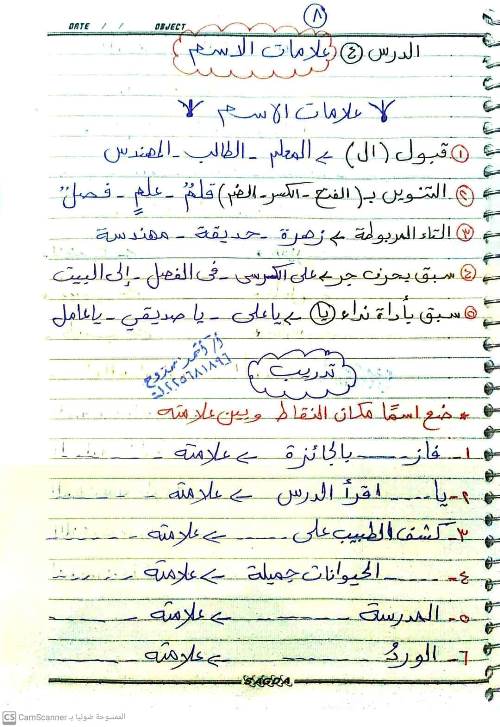 ٨
DATE / / OBJECT
الدرس ٤ علامات الاسم
علامات الاسم
١ قبول (ال) ← المعلم - الطالب - المهندس
٢ التنوين بـ (الفتح - الكسر - الضم) قلمٌ - علمٍ - فصلٌ
٣ التاء المربوطة ← زهرة - حديقة - مهندسة
٤ سبق بحرف جر ← على الكرسى - فى الفصل - إلى البيت
٥ سبق بأداة نداء (يا) ← يا على - يا صديقي - يا عامل
أ/ أحمد ممدوح
تدريب
* ضع اسمًا مكان النقاط وبين علامته
١- فاز ...... بالجائزة ← علامته ......
٢- يا ...... اقرأ الدرس ← علامته ......
٣- كشف الطبيب على ...... ← علامته ......
٤- ...... الحيوانات جميلة ← علامته ......
٥- المدرسة ...... ← علامته ......
٦- الوردُ ...... ← علامته ......
SASOOA
CS CamScanner الممسوحة ضوئيا بـ